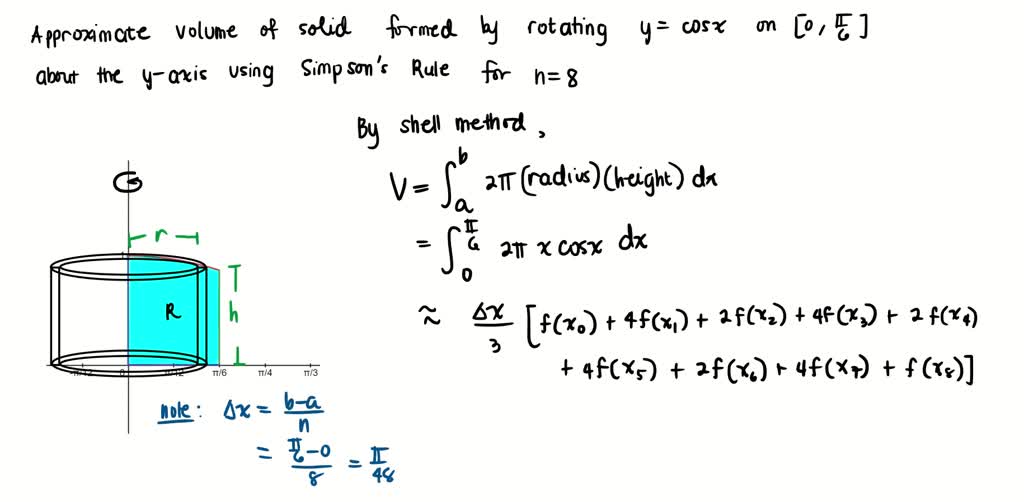 Approximate volume of solid formed by rotating y = cosx on [0, π/6]
about the y-axis using Simpson's Rule for n=8
By shell method,
V = ∫_a^b 2π (radius)(height) dx
= ∫_0^{π/6} 2π x cosx dx
≈ Δx/3 [f(x₀) + 4f(x₁) + 2f(x₂) + 4f(x₃) + 2f(x₄)
+ 4f(x₅) + 2f(x₆) + 4f(x₇) + f(x₈)]
r
R
h
-π/12 0 π/12 π/6 π/4 π/3
note: Δx = b-a/n
= π/6-0/8 = π/48